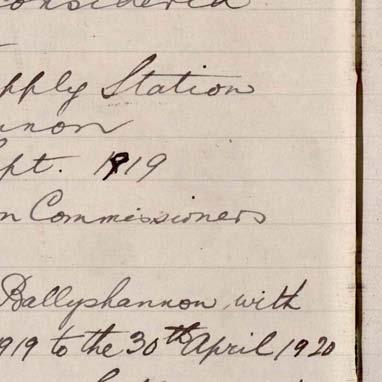 considered
pply Station
nnon
pt. 1919
n Commissioners
Ballyshannon, with
919 to the 30th April 1920